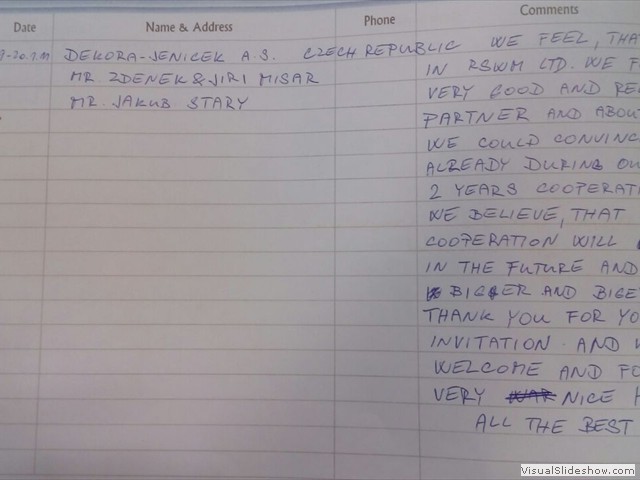 Date Name & Address Phone Comments
DEKORA-JENICEK A.S. CZECH REPUBLIC WE FEEL, THAT
MR. ZDENEK & JIRI MISAR IN RSWM LTD. WE F
MR. JAKUB STARY VERY GOOD AND RE
PARTNER AND ABOU
WE COULD CONVINC
ALREADY DURING OU
2 YEARS COOPERATI
WE BELIEVE, THAT
COOPERATION WILL
IN THE FUTURE AND
BIGGER AND BIGE
THANK YOU FOR YO
INVITATION. AND W
WELCOME AND FO
VERY NICE H
ALL THE BEST
VisualSlideshow.com